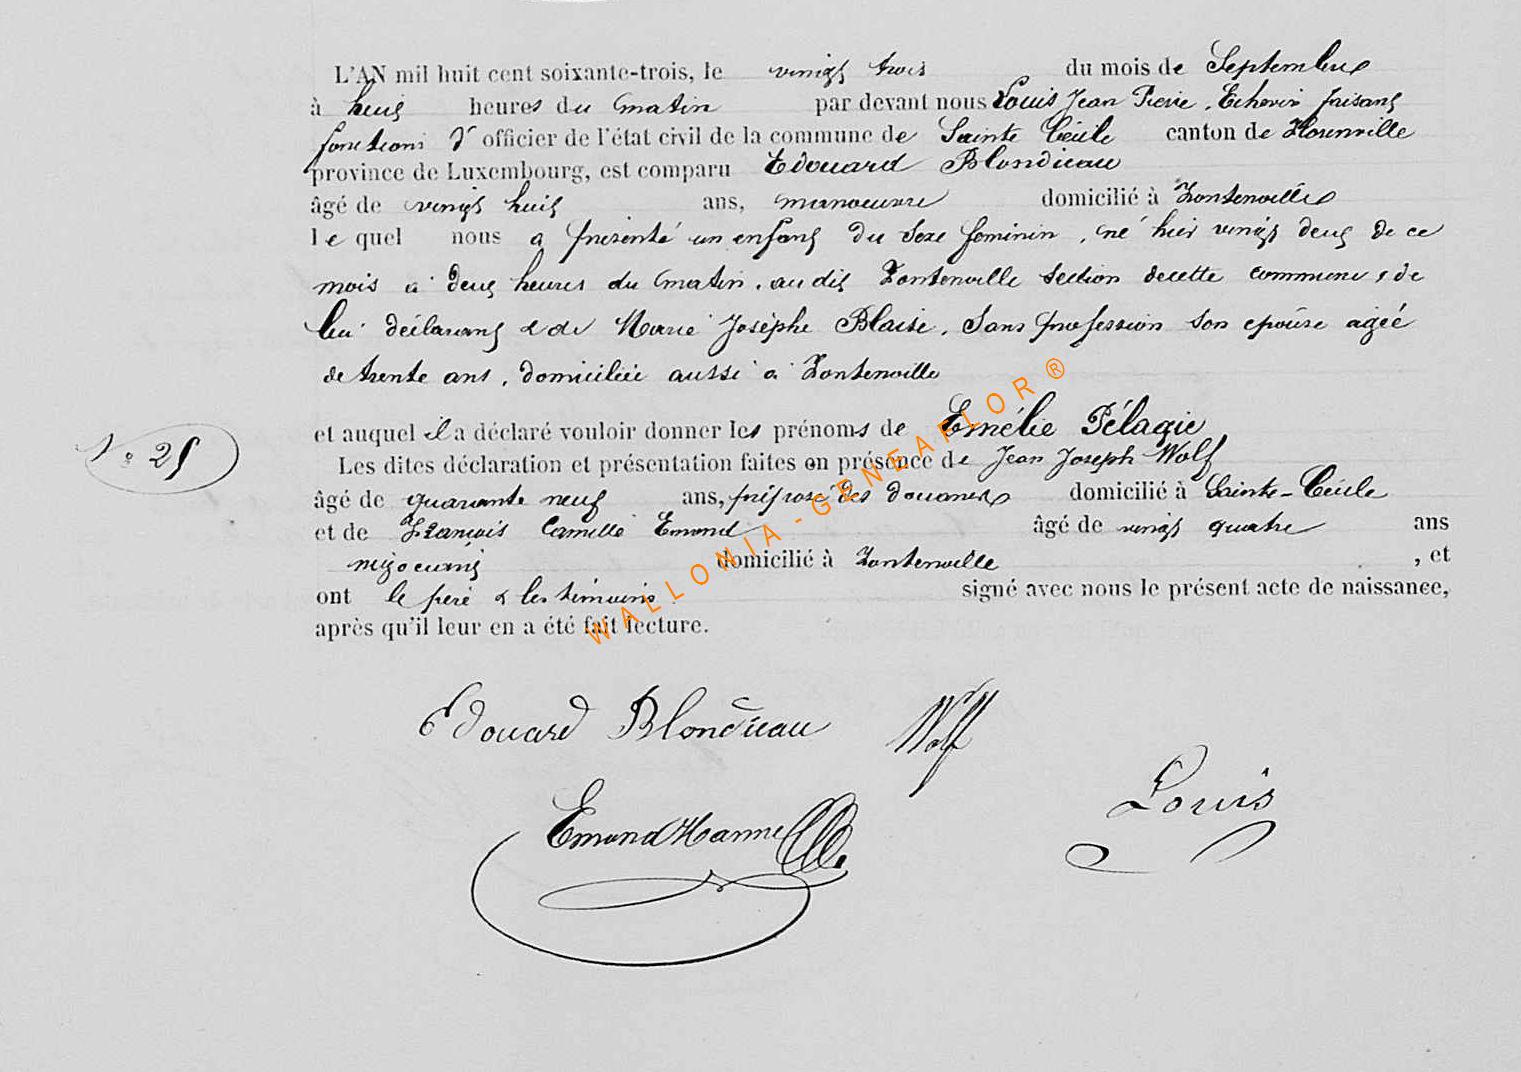 L'AN mil huit cent soixante-trois, le vingt trois du mois de Septembre
à huit heures du matin par devant nous Louis Jean Pierre, Echevin faisant
fonctions d' officier de l'état civil de la commune de Sainte Cécile canton de Florenville
province de Luxembourg, est comparu Edouard Blondieau
âgé de vingt huit ans, manoeuvre domicilié à Fontenoille
le quel nous a présenté un enfant du sexe féminin, né hier vingt deux de ce
mois à deux heures du matin, au dit Fontenoille section decette commune, de
lui déclarant & de Marie Josèphe Blaise, sans profession son epouse agée
de trente ans, domiciliée aussi à Fontenoille
et auquel il a déclaré vouloir donner les prénoms de Emélie Pélagie
Les dites déclaration et présentation faites en présence de Jean Joseph Wolf
N° 25
âgé de quarante neuf ans, préposé des douanes domicilié à Sainte-Cécile
et de François Camille Emond âgé de vingt quatre ans
négociant domicilié à Fontenoille , et
ont le père & les témoins signé avec nous le présent acte de naissance,
après qu'il leur en a été fait lecture.
WALLONIA-GENEAFLOR®
Edouard Blondieau Wolf
Emond Louis